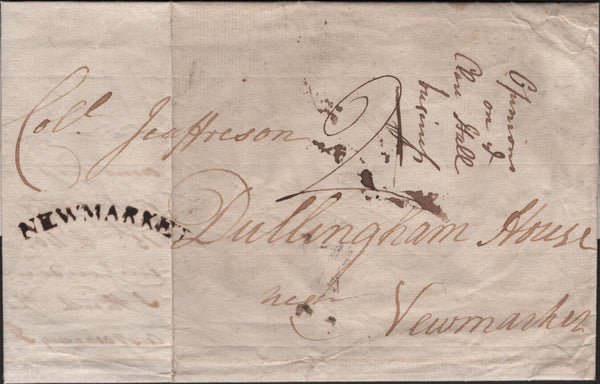 Opinions
on ye
Clare Hall
business
2
Coll. Jeaffreson
NEWMARKET
Dullingham House
near
Newmarket